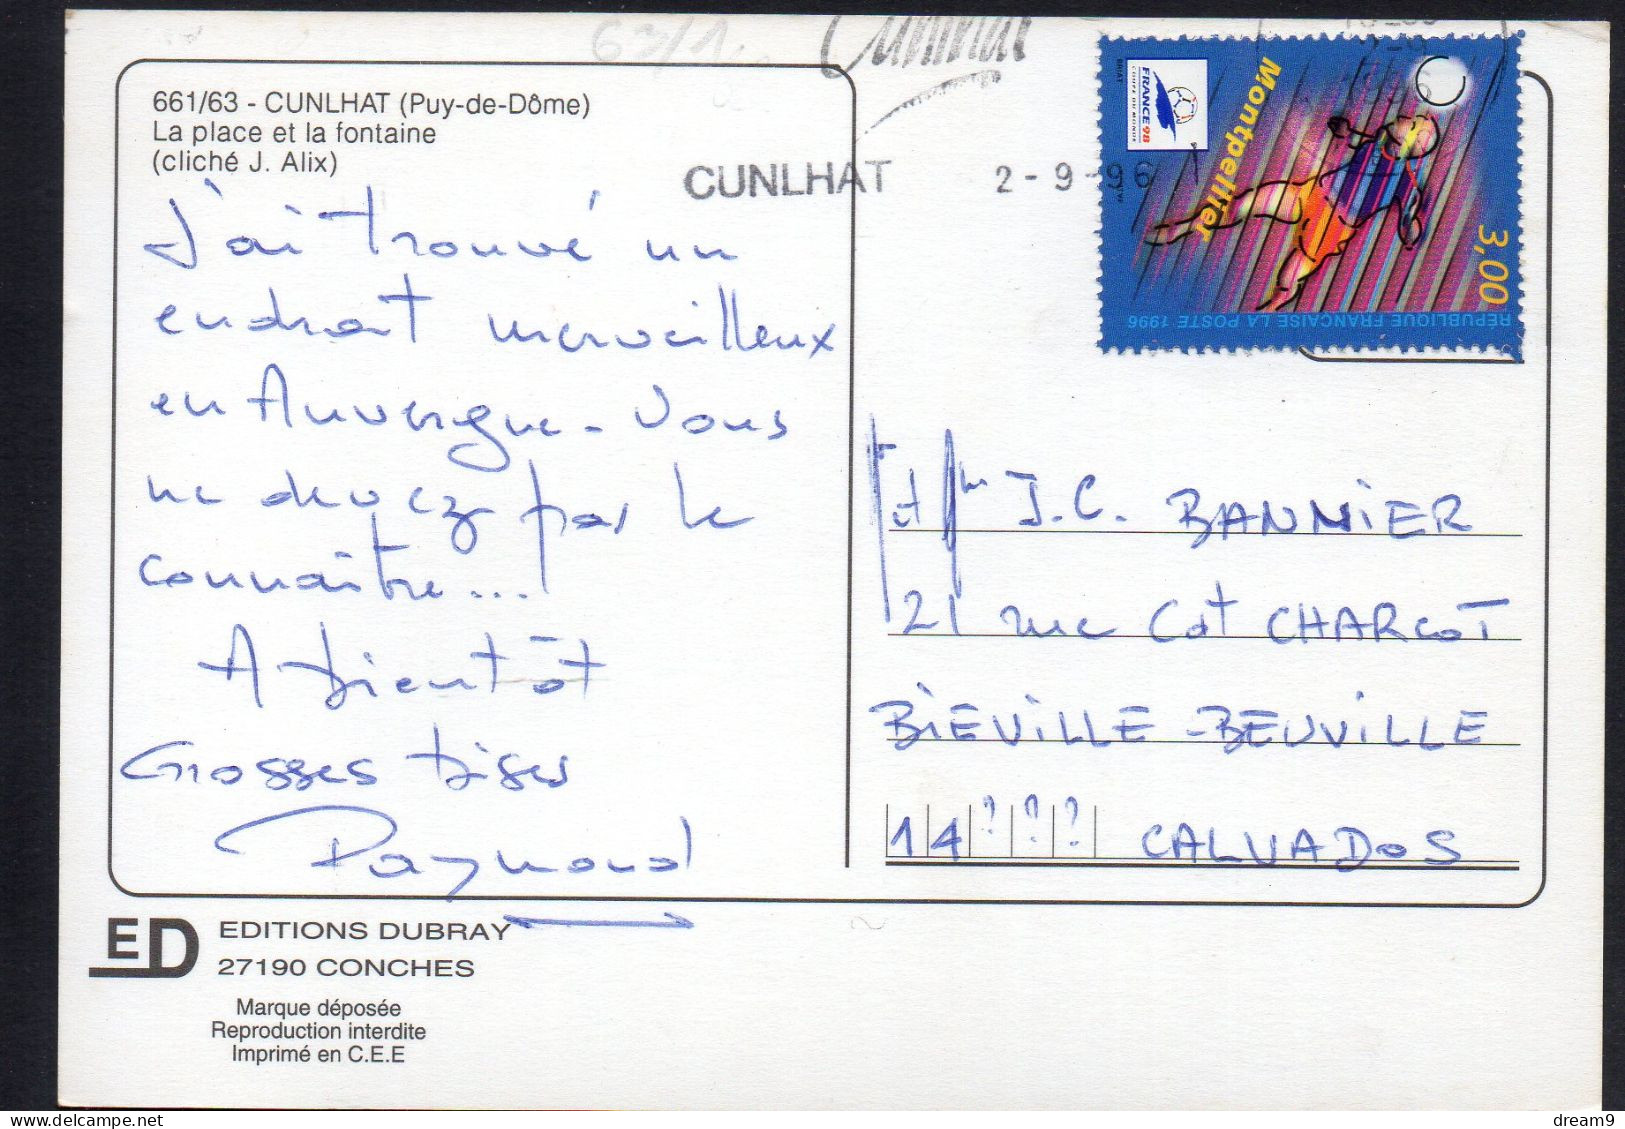 63/1
Cunlhat
661/63 - CUNLHAT (Puy-de-Dôme)
La place et la fontaine
(cliché J. Alix)
CUNLHAT 2-9-96
J'ai trouvé un
endroit merveilleux
en Auvergne - Vous
ne devez pas le
connaître...
A bientôt
Grosses bises
Raymond
FRANCE 98
COUPE DU MONDE
Montpellier
3,00
RÉPUBLIQUE FRANÇAISE LA POSTE 1996
et Mme J.C. BANNIER
21 rue Cdt CHARCOT
BIEVILLE-BEUVILLE
14??? CALVADOS
ED
EDITIONS DUBRAY
27190 CONCHES
Marque déposée
Reproduction interdite
Imprimé en C.E.E
dream9